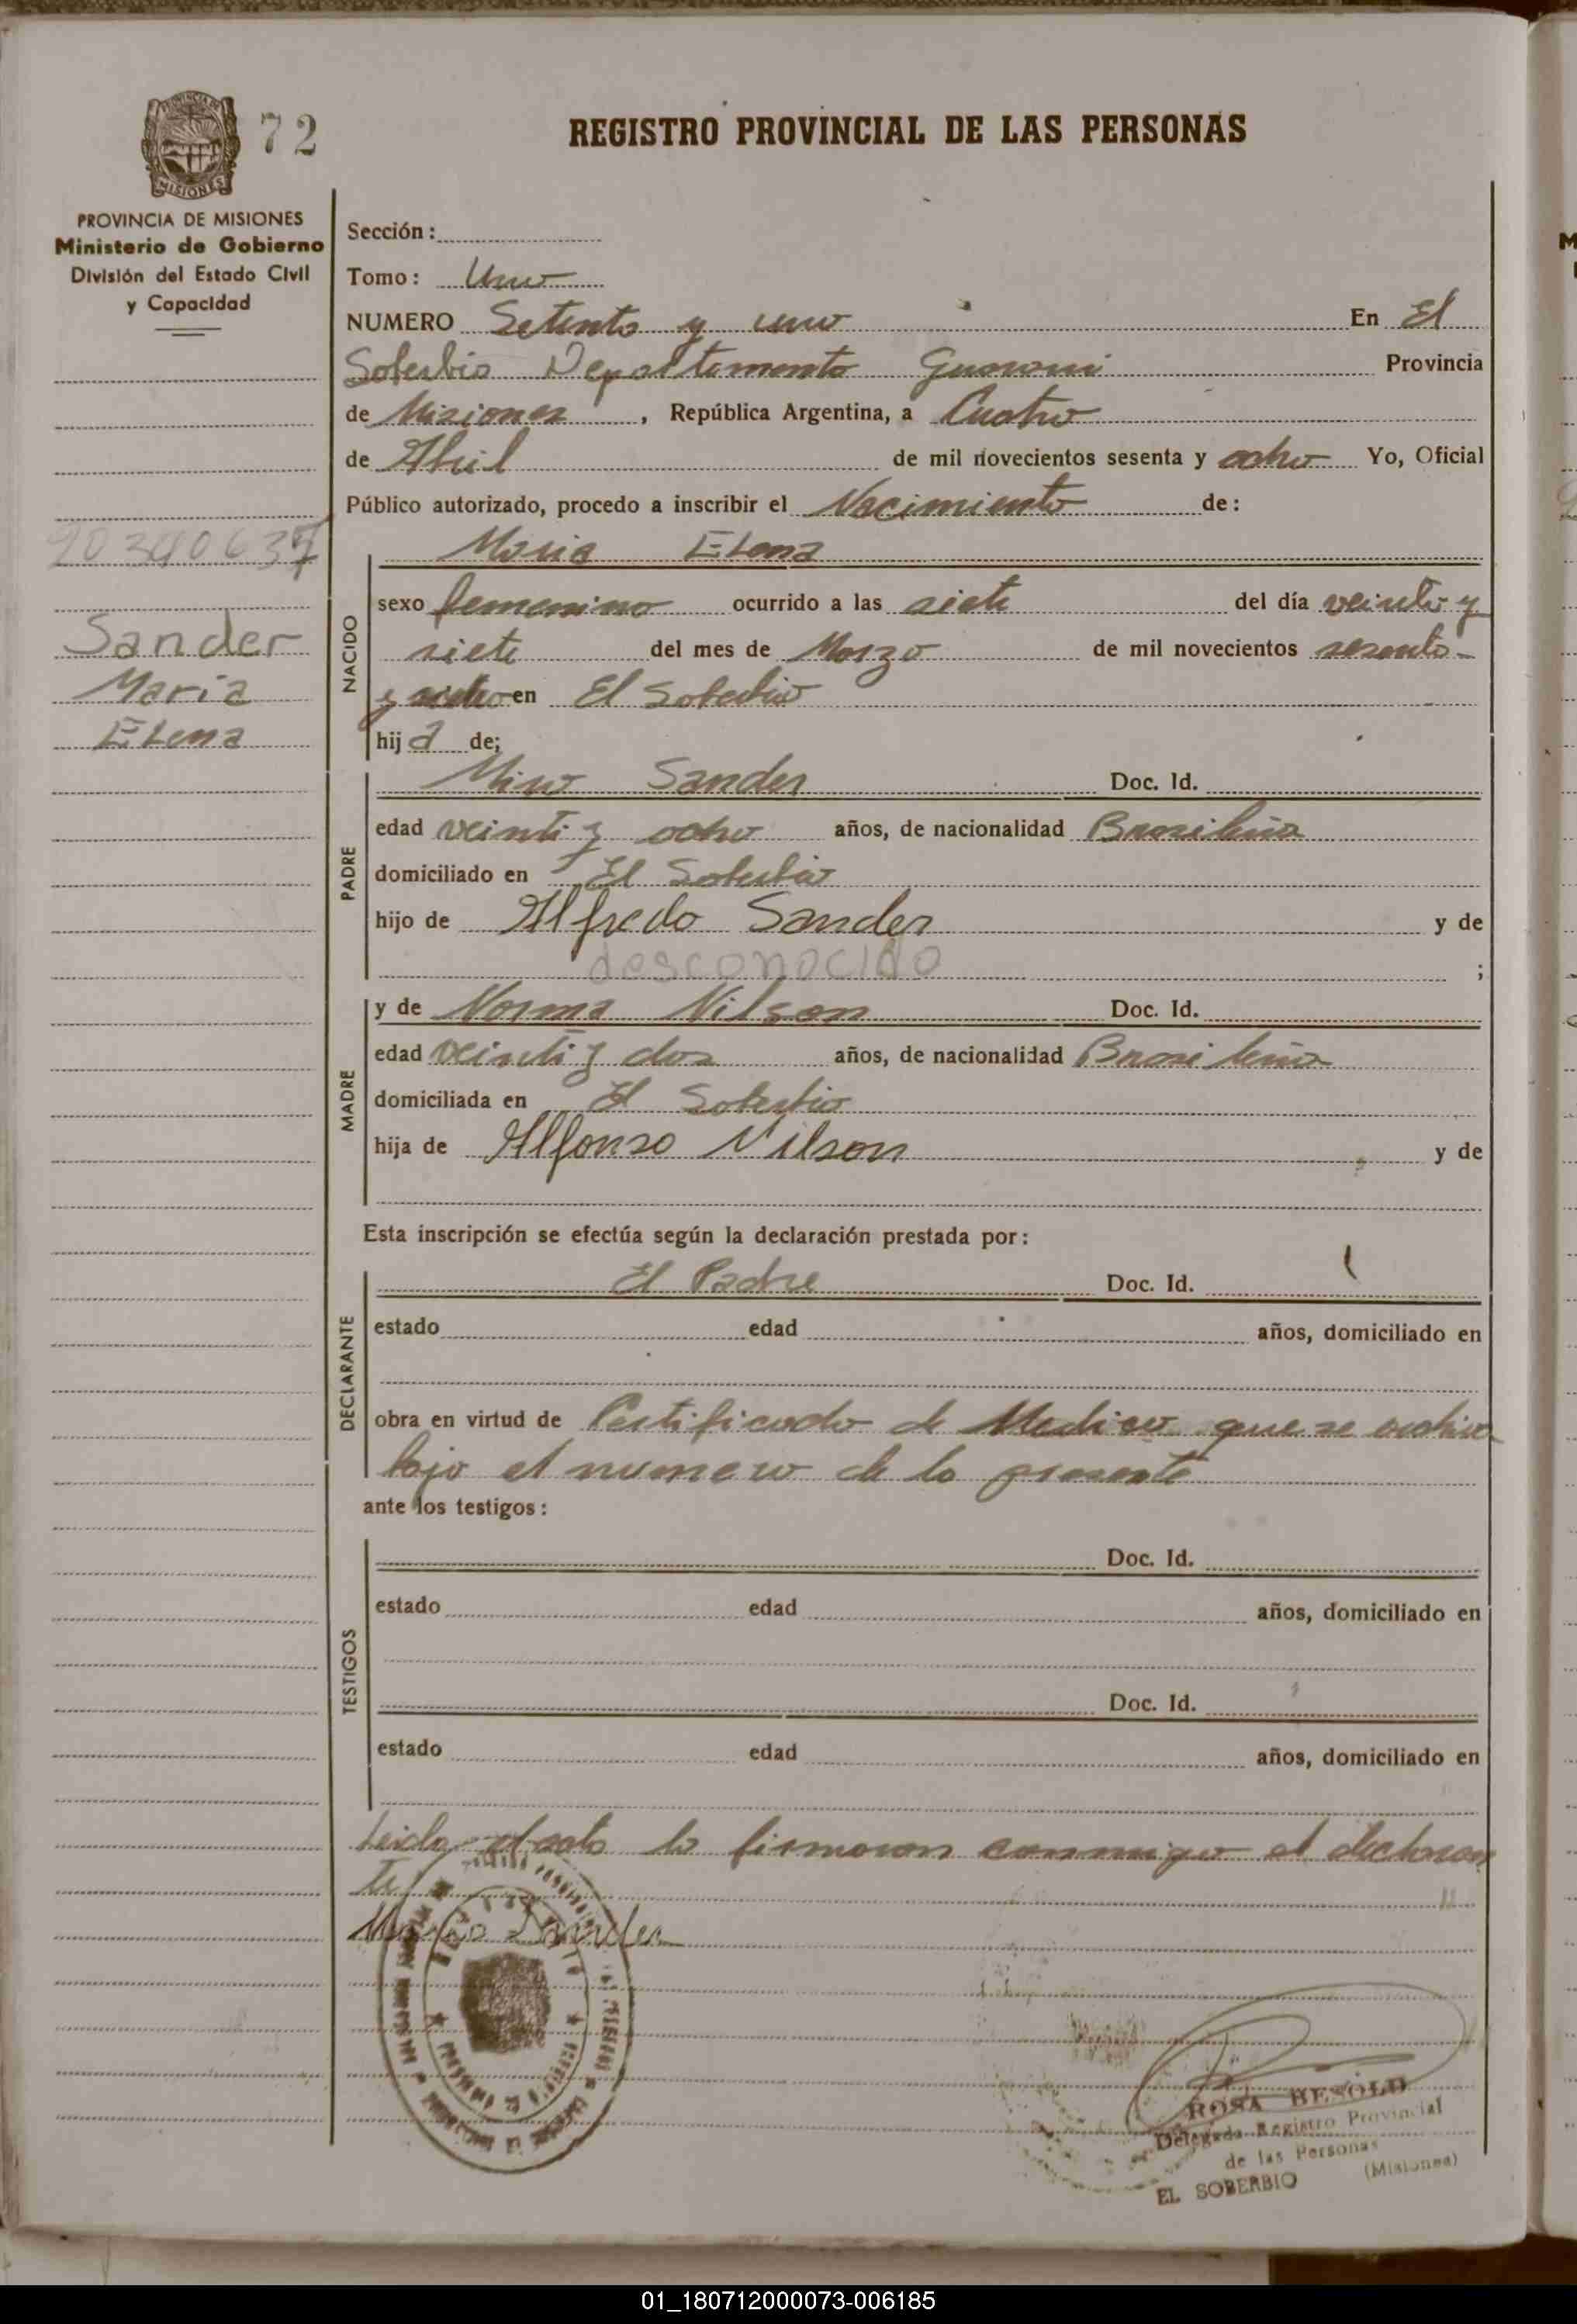 72
REGISTRO PROVINCIAL DE LAS PERSONAS
PROVINCIA DE MISIONES
Ministerio de Gobierno
División del Estado Civil
y Capacidad
Sección:
Tomo: Uno
NUMERO Setenta y uno En El
Soberbio Departamento Guarani Provincia
de Misiones, República Argentina, a Cuatro
de Abril de mil novecientos sesenta y ocho Yo, Oficial
Público autorizado, procedo a inscribir el Nacimiento de:
Maria Elena
Sander
Maria
Elena
NACIDO
sexo femenino ocurrido a las siete del día veinti y
siete del mes de Marzo de mil novecientos sesenta
y ocho en El Soberbio
hija de;
PADRE
Sander Doc. Id.
edad veinti y ocho años, de nacionalidad Brasileña
domiciliado en El Soberbio
hijo de Alfredo Sander y de
desconocido ;
MADRE
y de Norma Nilson Doc. Id.
edad veinti y dos años, de nacionalidad Brasileña
domiciliada en El Soberbio
hija de Alfonso Nilson y de
Esta inscripción se efectúa según la declaración prestada por:
DECLARANTE
El Padre Doc. Id.
estado edad años, domiciliado en
obra en virtud de Certificado de Medico que se archiva
bajo el numero de la presente
ante los testigos:
TESTIGOS
Doc. Id.
estado edad años, domiciliado en
Doc. Id.
estado edad años, domiciliado en
Leida el acta la firmaron conmigo el declaran
te
Sander
ROSA BESOLD
Delegada Registro Provincial
de las Personas
EL SOBERBIO (Misiones)
01_180712000073-006185